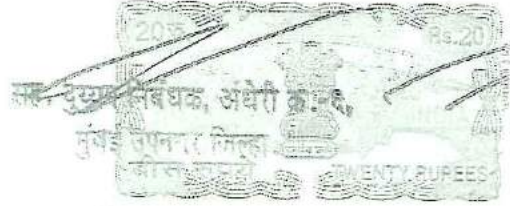 20रु Rs.20
सह. दुय्यम निबंधक, अंधेरी क्र.-६,
मुंबई उपनगर जिल्हा
बीस रुपये TWENTY RUPEES